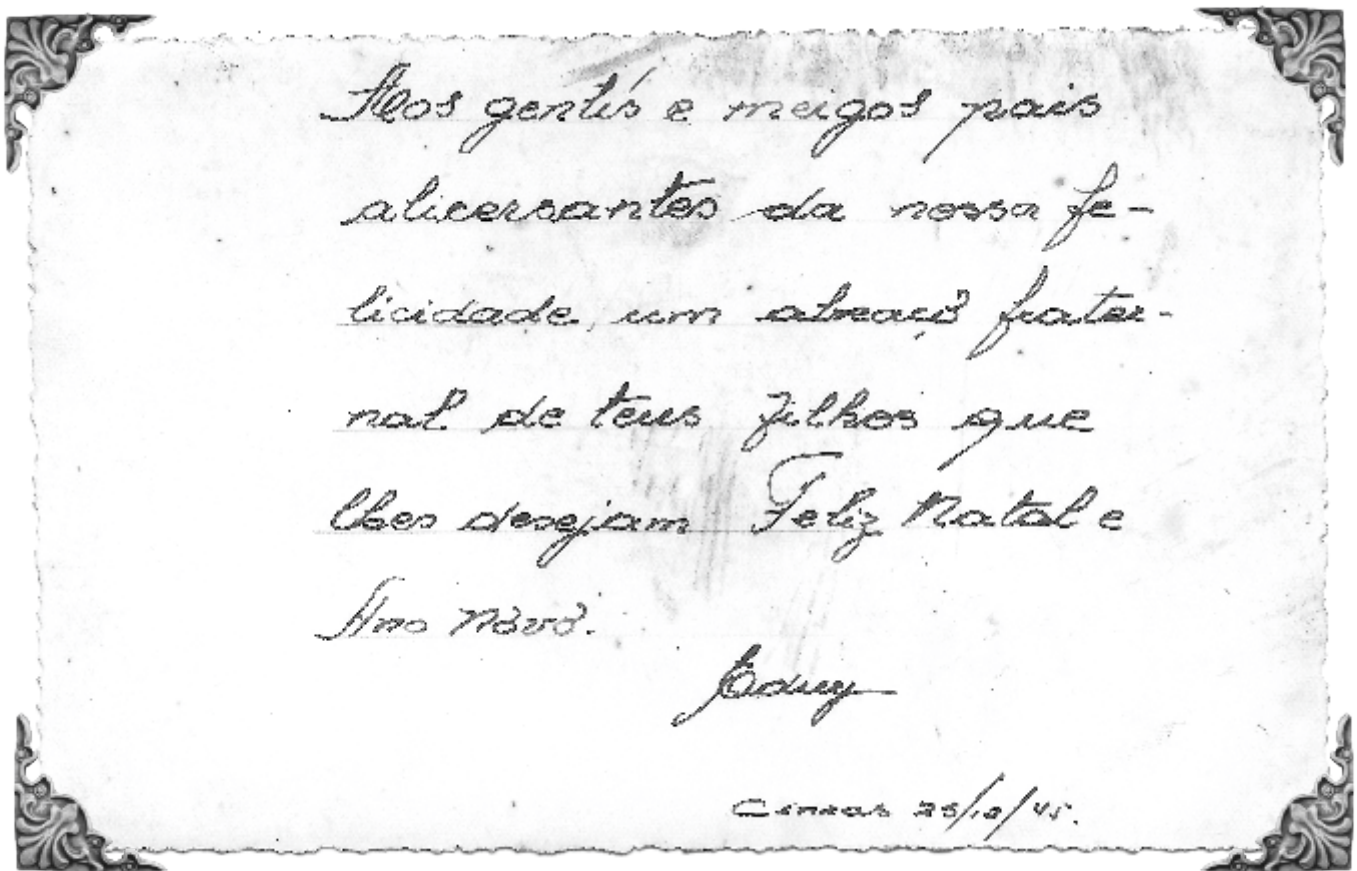 Aos gentís e meigos pais
alicersantes da nossa fe-
licidade, um abraçô frater-
nal de teus filhos que
lhes desejam Feliz Natal e
Ano Nôvô.
Eduy